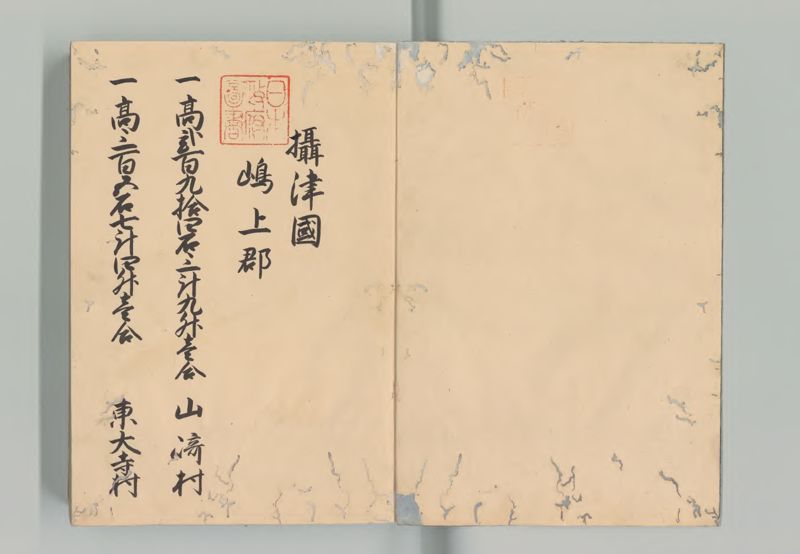 攝津國
嶋上郡
一高弐百九拾四石三斗九升壱合 山﨑村
一高三百五石七斗四升壱合 東大寺村
日本
政府
圖書